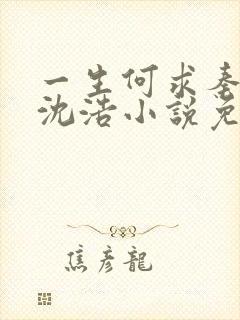 一生何求秦
沈浩小說免
焦彦龍